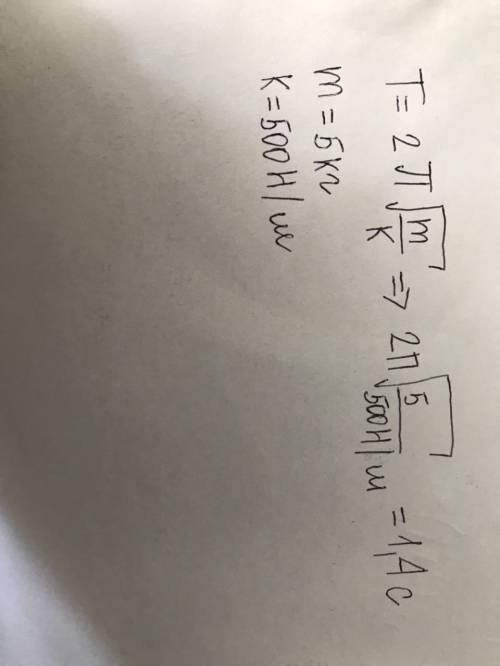 T = 2π√m/k => 2π√5/500Н/м = 1,4 с
m = 5 кг
k = 500 Н/м